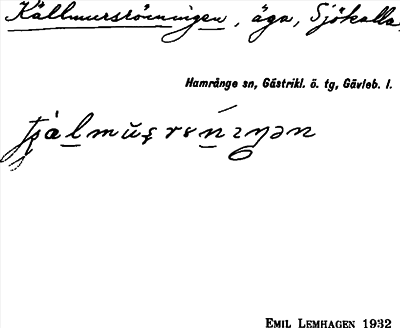 Källmursröningen, äga, Sjökalla.
Hamrånge sn, Gästrikl. ö. tg, Gävleb. l.
EMIL LEMHAGEN 1932